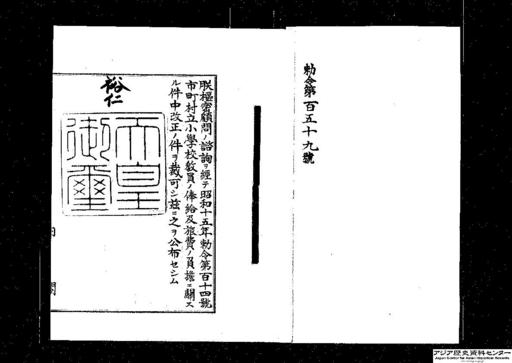 勅令第百五十九號
朕樞密顧問ノ諮詢ヲ經テ昭和十五年勅令第百十四號
市町村立小學校敎員ノ俸給及旅費ノ負擔ニ關ス
ル件中改正ノ件ヲ裁可シ茲ニ之ヲ公布セシム
裕仁
天皇
御璽
閣
アジア歴史資料センター
Japan Center for Asian Historical Records